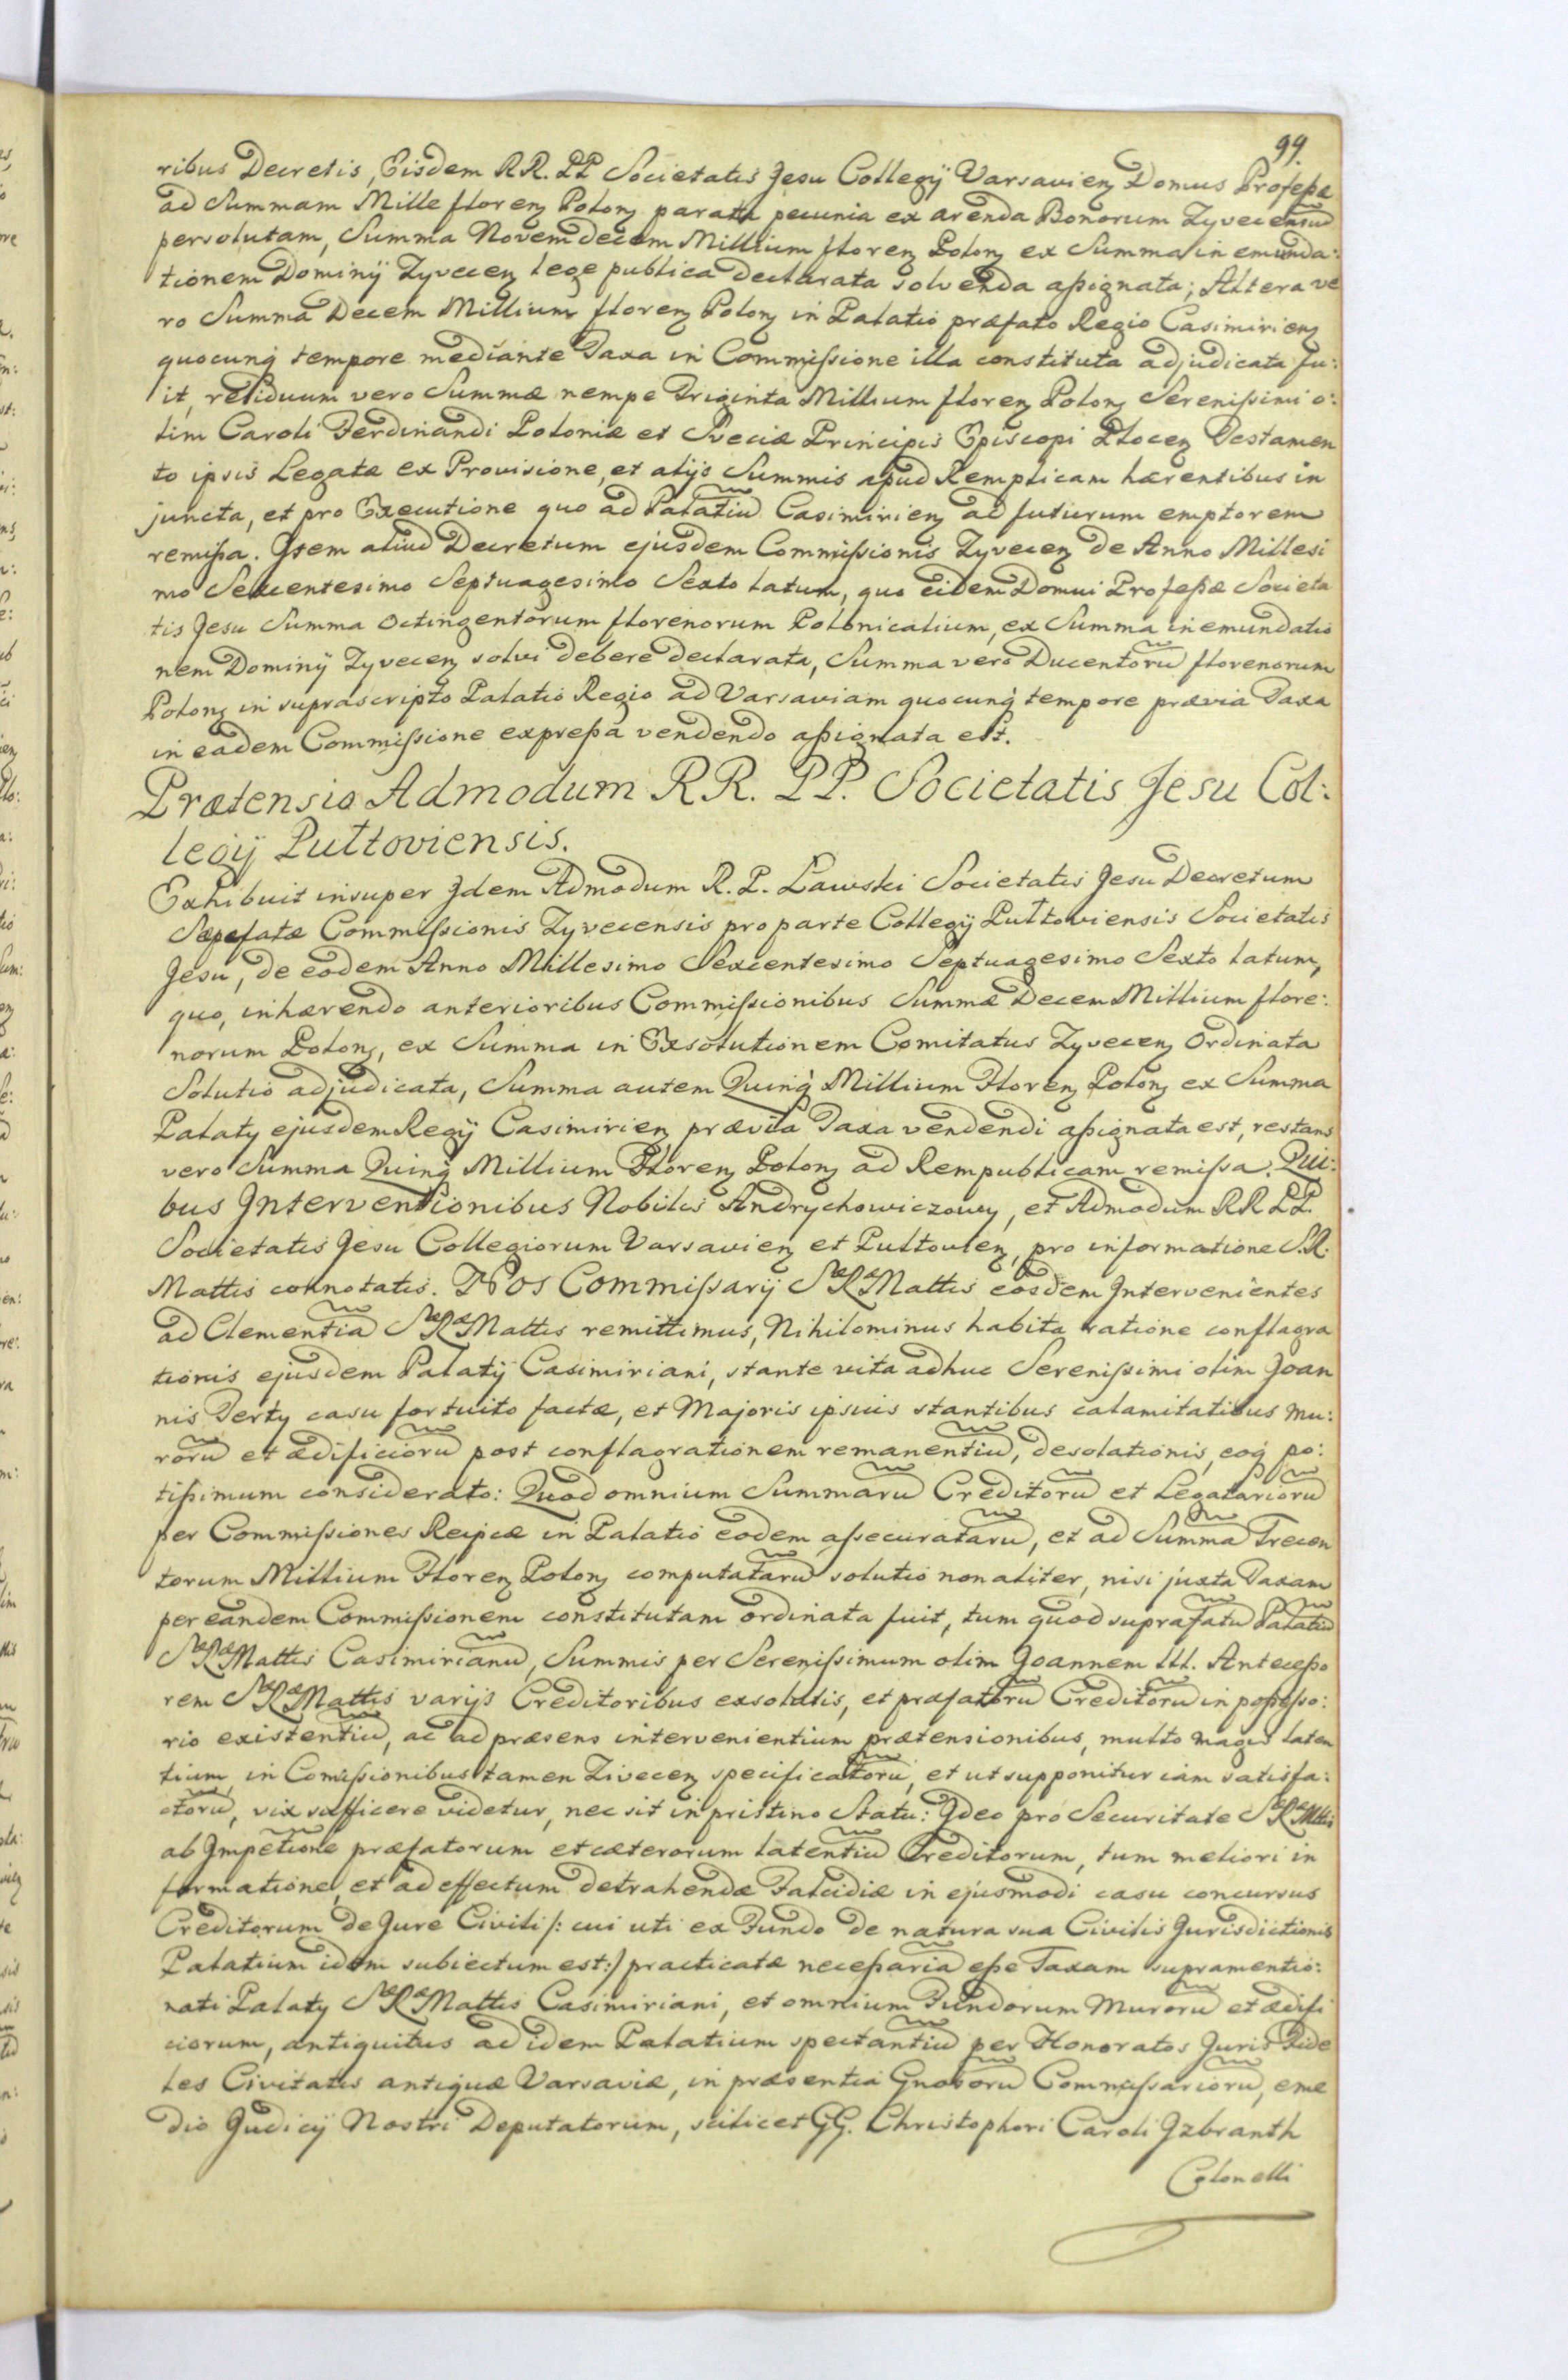 99.
ribus Decretis, Eisdem RR. PP Societatis Jesu Collegÿ Varsavien Domus Professæ
ad Summam Mille floren Polon parata pecunia ex arenda Bonorum Zyvecensiū
persolutam, Summa Novemdecem Millium floren Polon ex Summa in emunda:
tionem Dominÿ Zyvecen lege publica declarata solvenda assignata; Altera ve
ro Summa Decem Millium floren Polon in Palatio præfato Regio Casimirien
quocunq tempore mediante Taxa in Commissione illa constituta adjudicata fu:
it, residuum vero Summæ nempe Triginta Millium floren Polon Serenissimi o:
lim Caroli Ferdinandi Poloniæ et Sveciæ Principis Episcopi Plocen Testamen
to ipsis Legatæ ex Provisione, et alÿs Summis apud Remplicam hærentibus in
juncta, et pro Executione quo ad Palatiū Casimirien ad futurum emptorem
remissa. Item aliud Decretum ejusdem Commissionis Zyvecen de Anno Millesi
mo Sexcentesimo Septuagesimo Sexto latum, quo eidem Domui Professæ Societa
tis Jesu Summa Octingentorum florenorum Polonicalium, ex Summa in emundatio
nem Dominÿ Zyvecen solvi debere declarata, Summa vero Ducentorū florenorum
Polon in suprascripto Palatio Regio ad Varsaviam quocunq tempore prævia Taxa
in eadem Commissione expressa vendendo assignata est.
Prætensio Admodum RR. PP. Societatis Jesu Col:
legÿ Pultoviensis.
Exhibuit insuper Idem Admodum R. P. Lawski Societatis Jesu Decretum
Sæpefatæ Commissionis Zyvecensis pro parte Collegÿ Pultoviensis Societatis
Jesu, de eodem Anno Millesimo Sexcentesimo Septuagesimo Sexto latum,
quo, inhærendo anterioribus Commissionibus Summæ Decem Millium flore:
norum Polon, ex Summa in Exsolutionem Comitatus Zyvecen Ordinata
Solutio adjudicata, Summa autem Quinq Millium Floren Polon ex Summa
Palaty ejusdem Regÿ Casimirien prævia Taxa vendendi assignata est, restans
vero Summa Quinq Millium Floren Polon ad Rempublicam remissa. Qui:
bus Interventionibus Nobilis Andrychowiczowy, et Admodum RR PP.
Societatis Jesu Collegiorum Varsavien et Pultovien, pro informatione S.R.
Mattis connotatis. Nos Commissarÿ Sæ Ræ Mattis eosdem Intervenientes
ad Clementiā Sæ Ræ Mattis remittimus, Nihilominus habita ratione conflagra
tionis ejusdem Palatÿ Casimiriani, stante vita adhuc Serenissimi olim Joan
nis Terty casu fortuito factæ, et Majoris ipsius stantibus calamitatibus mu:
rorū et ædificiorū post conflagrationem remanentiū, desolationis, eoq po:
tissimum considerato: Quod omnium Summarū Creditorū et Legatariorū
per Commissiones Reipcæ in Palatio eodem assecuratarū, et ad Summā Trecen
torum Millium Floren Polon computatarū solutio non aliter, nisi juxta Taxam
per eandem Commissionem constitutam ordinata fuit, tum quod suprafatū Palatiū
Sæ Ræ Mattis Casimirianū, Summis per Serenissimum olim Joannem III. Antecesso
rem Sæ Ræ Mattis varÿs Creditoribus exsolutis, et præfatorū Creditorū in possesso:
rio existentiū, ac ad præsens intervenientium prætensionibus, multo magis laten
tium, in Comissionibus tamen Zivecen specificatorū, et ut supponitur iam satisfa:
ctorū, vix sufficere videtur, nec sit in pristino Statu: Ideo pro Securitate Sæ Ræ Mttis
ab Impetione præfatorum et cæterorum latentiū Creditorum, tum meliori in
formatione, et ad effectum detrahendæ Falcidiæ in ejusmodi casu concursus
Creditorum de Jure Civili /: cui uti ex Fundo de natura sua Civilis Jurisdictionis
Palatium idem subiectum est:/ practicatæ necessariā esse Taxam supramentio:
nati Palaty Sæ Ræ Mattis Casimiriani, et omnium Fundorum Murorū et ædifi
ciorum, antiquitus ad idem Palatium spectantiū per Honoratos Juris Fide
les Civitatis antiquæ Varsaviæ, in præsentia Gnosorū Commissariorū, e me
dio Judicÿ Nostri Deputatorum, scilicet GG. Christophori Caroli Izbranth
Colonelli